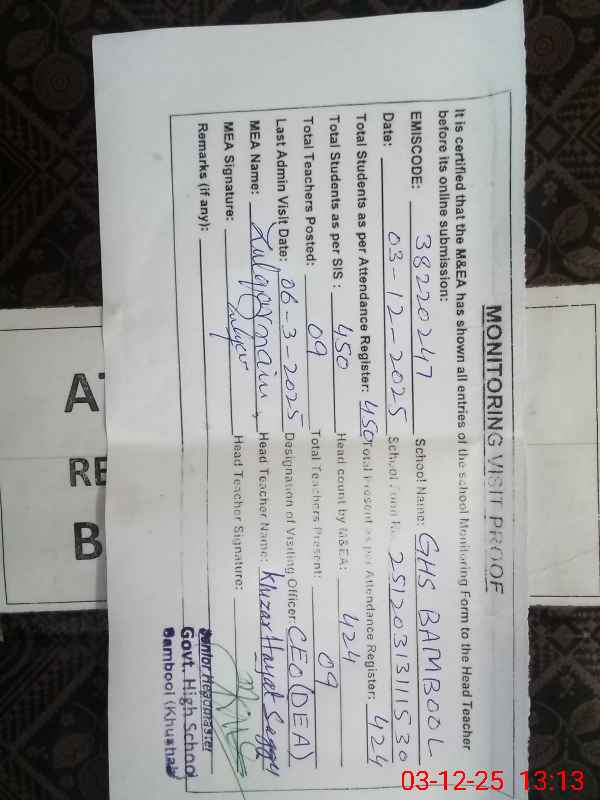 MONITORING VISIT PROOF
It is certified that the M&EA has shown all entries of the school Monitoring Form to the Head Teacher
before its online submission:
EMISCODE: 38220247 School Name: GHS BAMBOOL
Date: 03-12-2025 School Form No. 2512031311530
Total Students as per Attendance Register: 450 Total Present as per Attendance Register: 424
Total Students as per SIS : 450 Head count by M&EA: 424
Total Teachers Posted: 09 Total Teachers Present: 09
Last Admin Visit Date: 06-3-2025 Designation of Visiting Officer: CEO (DEA)
MEA Name: Head Teacher Name: Khizar Hayat
MEA Signature: Head Teacher Signature:
Remarks (if any):
Senior Headmaster
Govt. High School
Bambool (Khushab)
RE
B
03-12-25 13:13